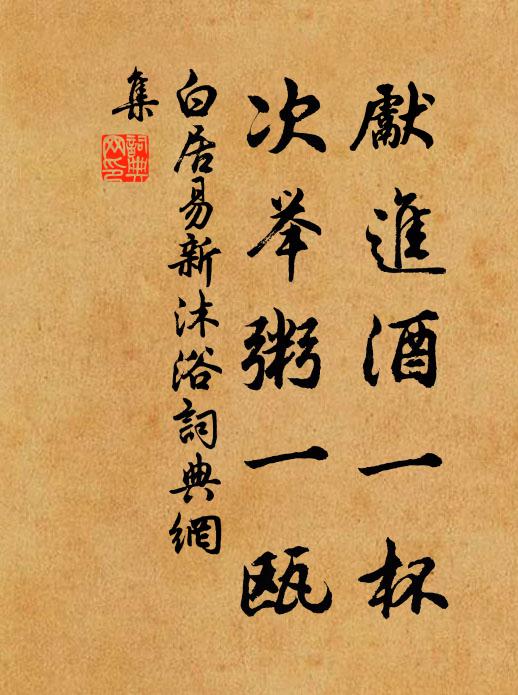 獻進酒一杯
次举粥一瓯
白居易新沐浴詞典網
集
詞典
网印